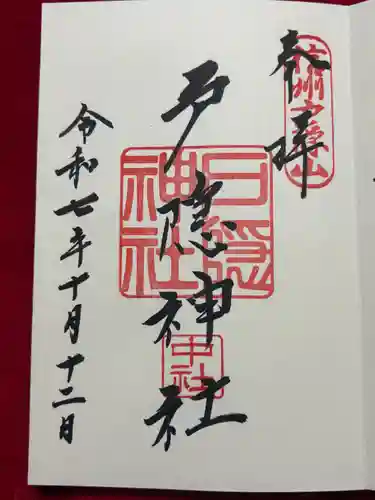 奉拝
信州戸隠山
戸隠神社
戸隠神社
中社
令和七年十月十二日